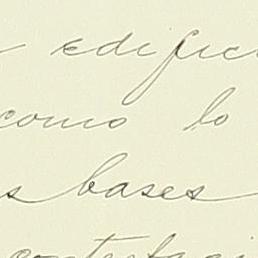 edific
como lo
s bases